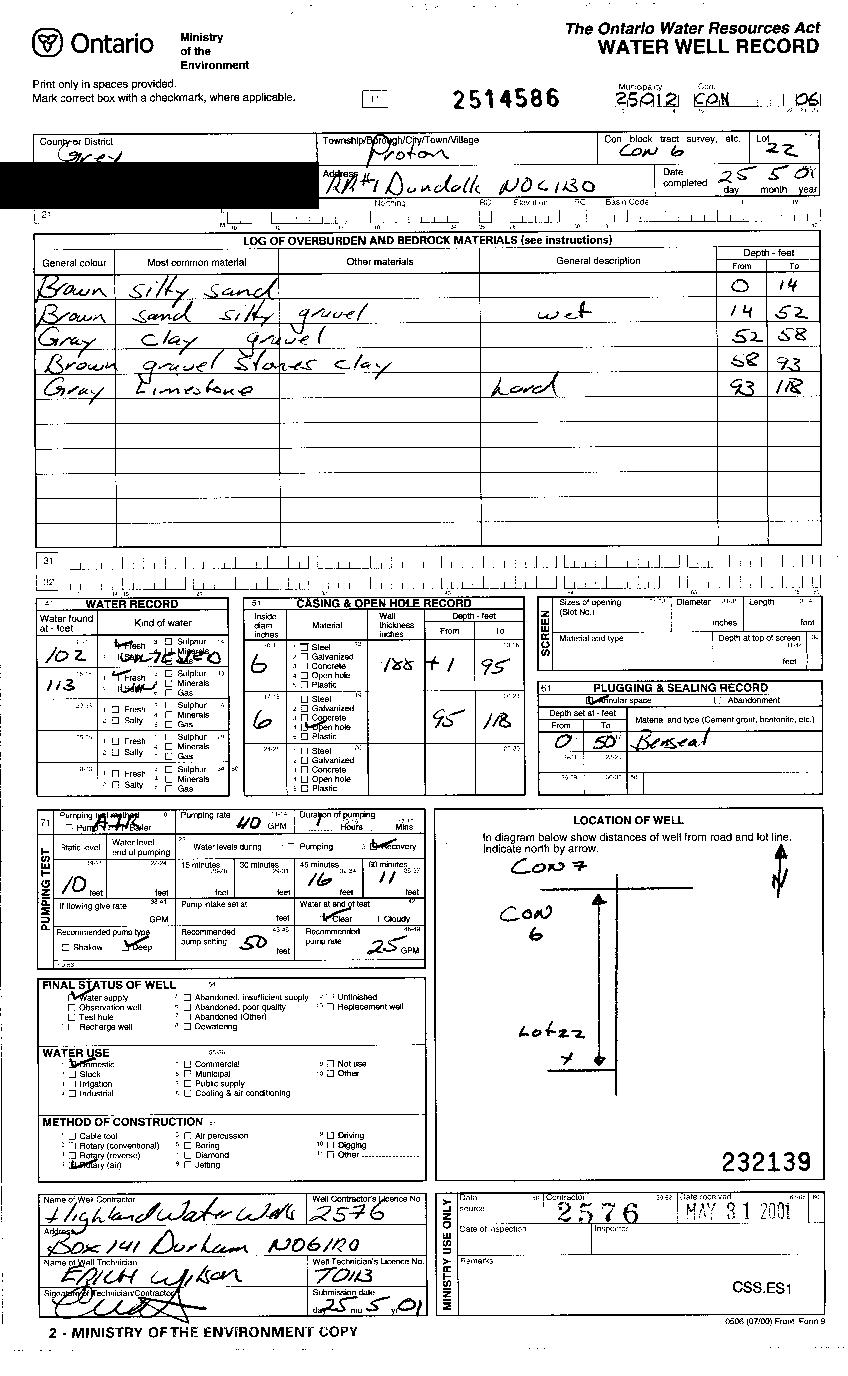 The Ontario Water Resources Act
Ontario Ministry of the Environment WATER WELL RECORD
Print only in spaces provided.
Mark correct box with a checkmark, where applicable.
2514586
Municipality Con.
25012 CON 06
County or District Township/Borough/City/Town/Village Con block tract survey, etc. Lot
Grey Proton CON 6 22
Address Date completed
RR#1 Dundalk N0C1B0 25 5 01
day month year
21
Northing RC Elevation RC Basin Code
LOG OF OVERBURDEN AND BEDROCK MATERIALS (see instructions)
General colour Most common material Other materials General description Depth - feet From To
Brown silty sand 0 14
Brown sand silty gravel wet 14 52
Gray clay gravel 52 58
Brown gravel stones clay 58 93
Gray Limestone hard 93 118
31
32
41 WATER RECORD
Water found at - feet Kind of water
102 Fresh Salty Sulphur Minerals Gas
UNTESTED
113 Fresh Sulphur Minerals Gas
Fresh Salty Sulphur Minerals Gas
Fresh Salty Sulphur Minerals Gas
Fresh Salty Sulphur Minerals Gas
51 CASING & OPEN HOLE RECORD
Inside diam inches Material Wall thickness inches Depth - feet From To
6 Steel Galvanized Concrete Open hole Plastic 188 +1 95
6 Steel Galvanized Concrete Open hole Plastic 95 118
Steel Galvanized Concrete Open hole Plastic
SCREEN
Sizes of opening (Slot No.) Diameter inches Length feet
Material and type Depth at top of screen feet
61 PLUGGING & SEALING RECORD
Annular space Abandonment
Depth set at - feet From To Material and type (Cement grout, bentonite, etc.)
0 50 Benseal
71 PUMPING TEST
Pumping test method Pump Bailer AIR
Pumping rate 40 GPM
Duration of pumping 1 Hours Mins
Static level Water level end of pumping Water levels during Pumping Recovery
15 minutes 30 minutes 45 minutes 60 minutes
10 feet feet feet feet 16 feet 11 feet
If flowing give rate GPM Pump intake set at feet Water at end of test Clear Cloudy
Recommended pump type Shallow Deep
Recommended pump setting 50 feet
Recommended pump rate 25 GPM
LOCATION OF WELL
In diagram below show distances of well from road and lot line.
Indicate north by arrow.
CON 7
N
CON
6
Lot 22
X
232139
FINAL STATUS OF WELL
Water supply Abandoned, insufficient supply Unfinished
Observation well Abandoned, poor quality Replacement well
Test hole Abandoned (Other)
Recharge well Dewatering
WATER USE
Domestic Commercial Not use
Stock Municipal Other
Irrigation Public supply
Industrial Cooling & air conditioning
METHOD OF CONSTRUCTION
Cable tool Air percussion Driving
Rotary (conventional) Boring Digging
Rotary (reverse) Diamond Other
Rotary (air) Jetting
Name of Well Contractor Well Contractor's Licence No.
Highland Water Wells 2576
Address
Box 141 Durham N0G1R0
Name of Well Technician Well Technician's Licence No.
ERICH Wilson T0113
Signature of Technician/Contractor Submission date
day 25 mo 5 yr 01
MINISTRY USE ONLY
Data source Contractor Date received
2576 MAY 31 2001
Date of inspection Inspector
Remarks
CSS.ES1
2 - MINISTRY OF THE ENVIRONMENT COPY
0506 (07/00) Front Form 9